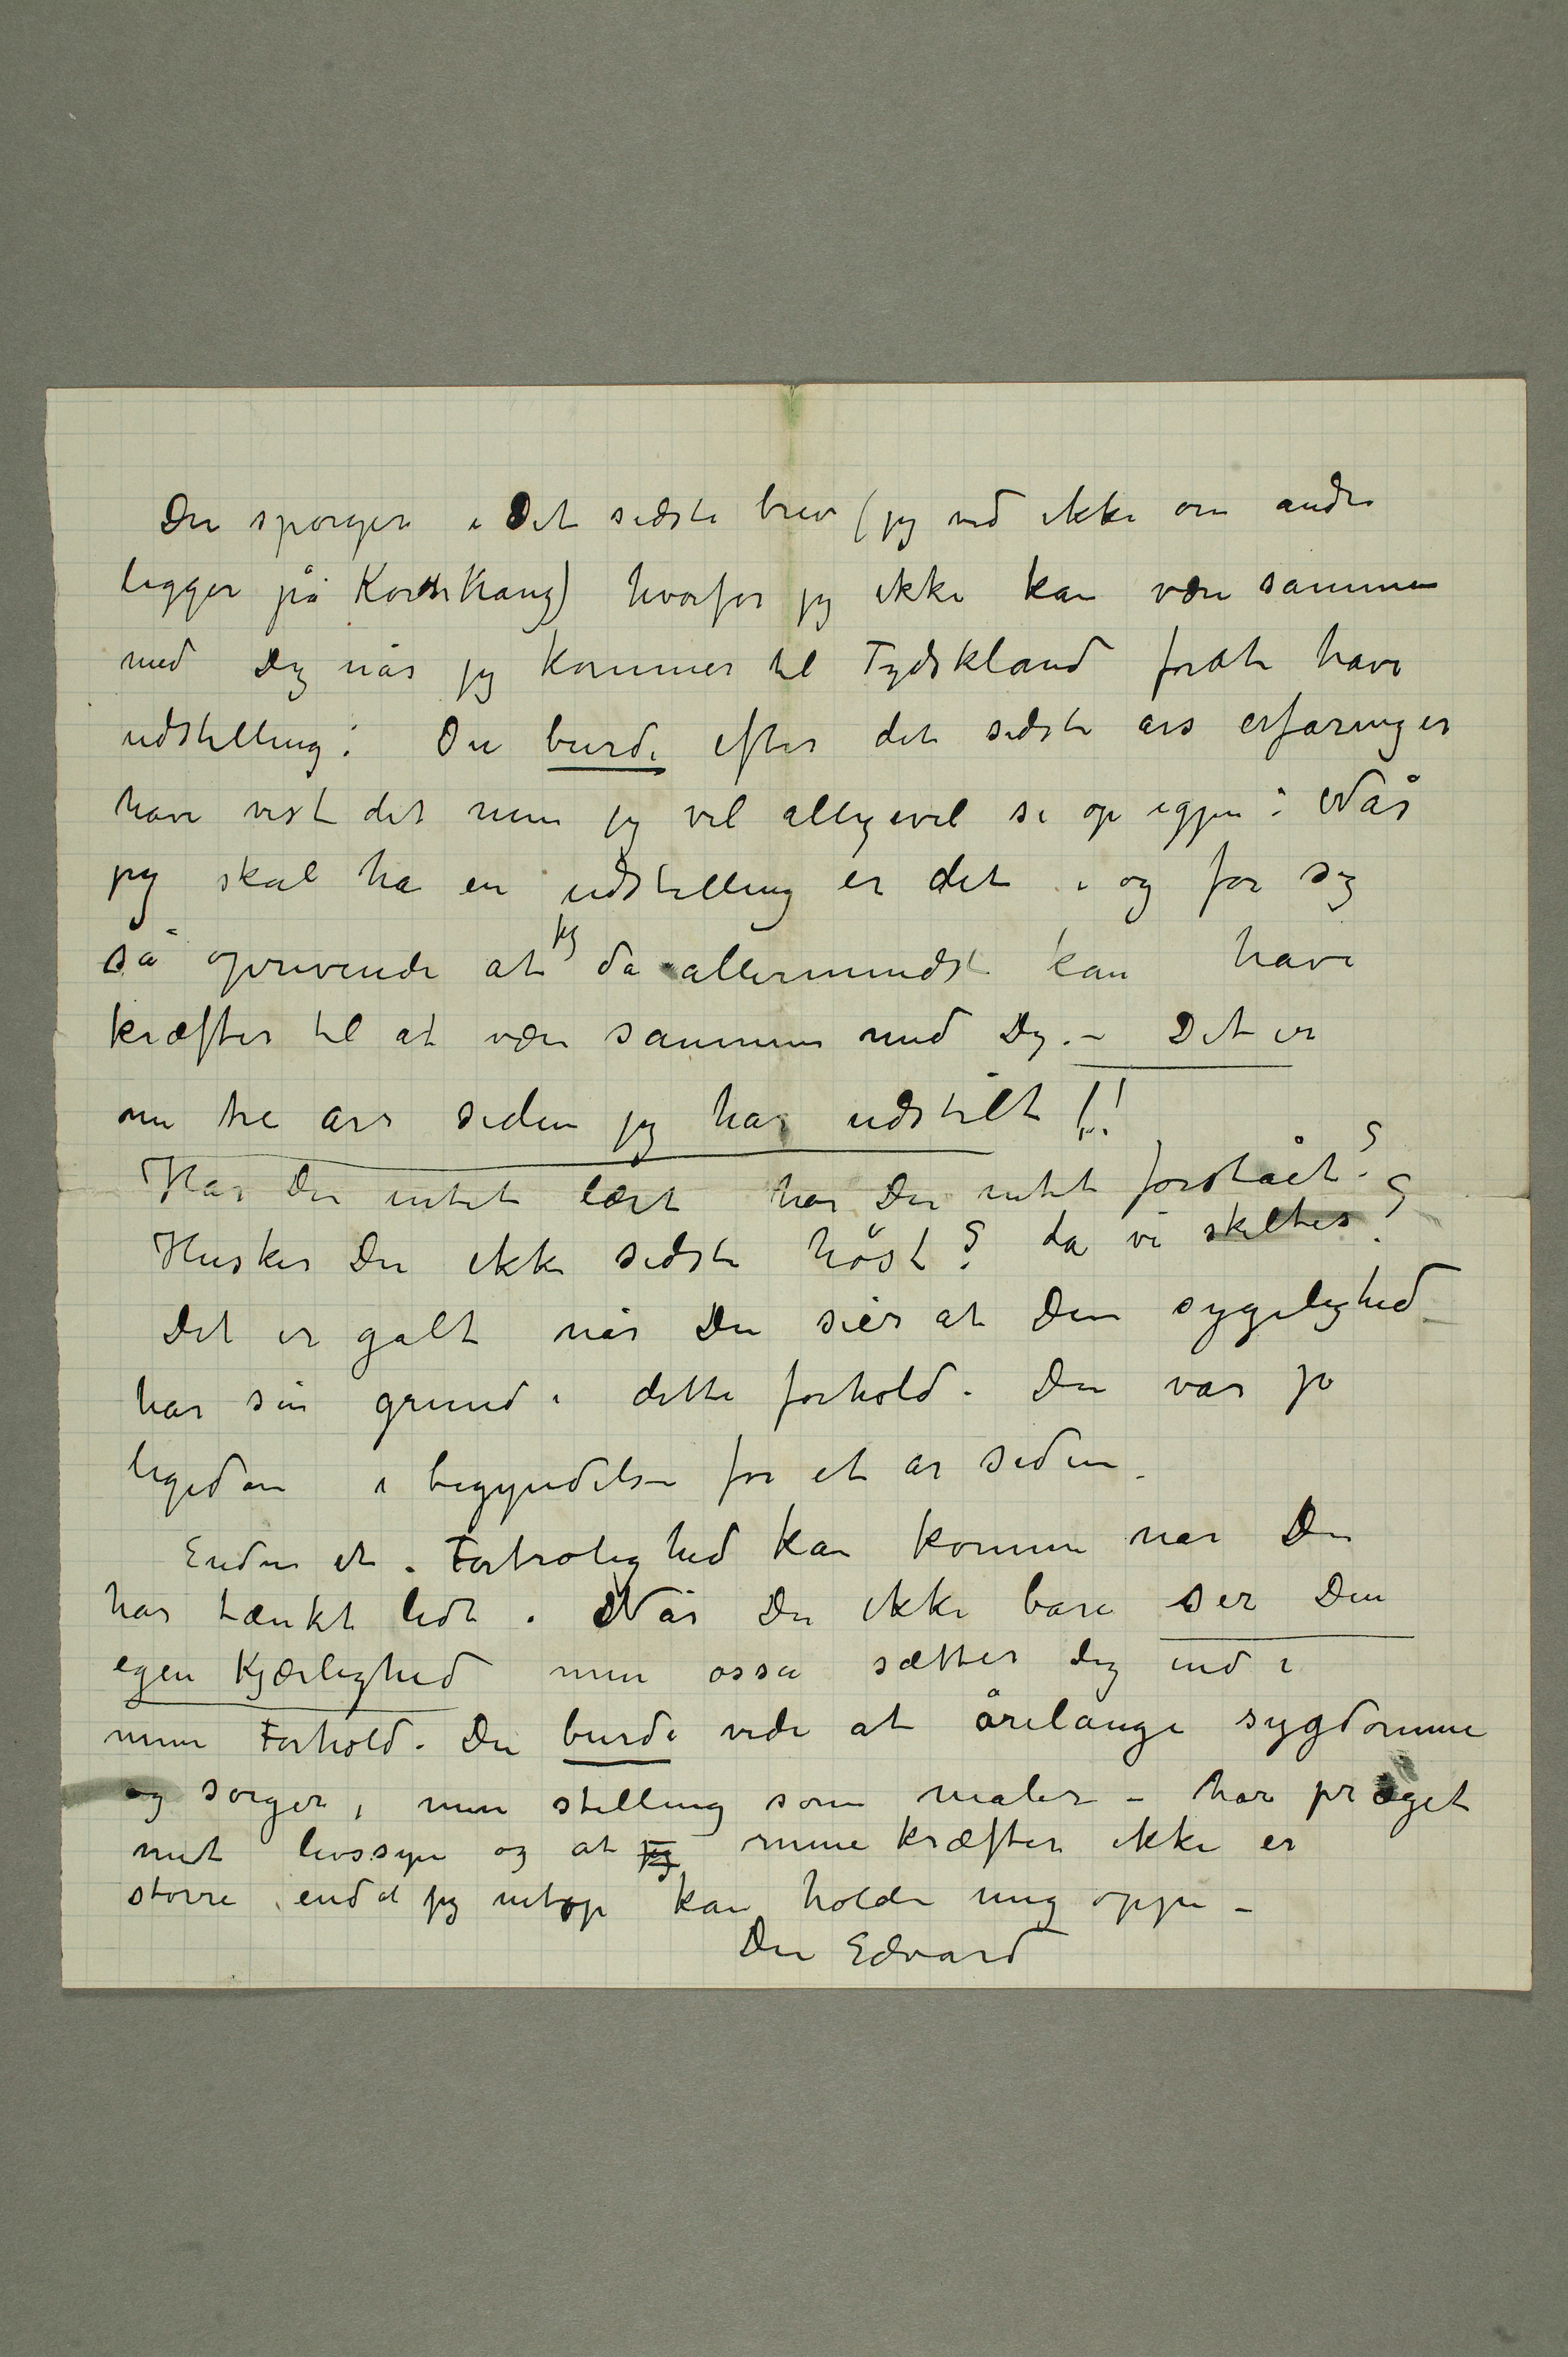 Du spørger i Det sidste brev (jeg ved ikke om andre
ligger på Korsikang) hvorfor jeg ikke kan være sammen
med Dig når jeg kommer til Tydskland forat have
udstilling: Du burde efter det sidste års erfaringer
have vist det men jeg vil alligevel si op igjen: Når
jeg skal ha en udstilling er det i og for sig
så oprivende at jeg da allermindst kan have
kræfter til at være sammen med Dig. – Det er
nu tre års siden jeg har udstilt!!
Har Du intet lært har Du intet forstået?
Husker Du ikke sidste höst? da vi skiltes?
Det er galt når Du siér at Din sygelighed
har sin grund i dette forhold. Du var jo
ligedan i begyndelsen for et år siden.
Endnu et. Fortrolighed kan komme når Du
har tænkt lidt. Når Du ikke bare ser Din
egen Kjærlighed men osså sætter dig ind i
mine Forhold. Du burde vide at årelange sygdomme
og sorger, min stilling som maler – har præget
mit livssyn og at jeg mine kræfter ikke er
større end at jeg netop kan holde mig oppe –
Din Edvard